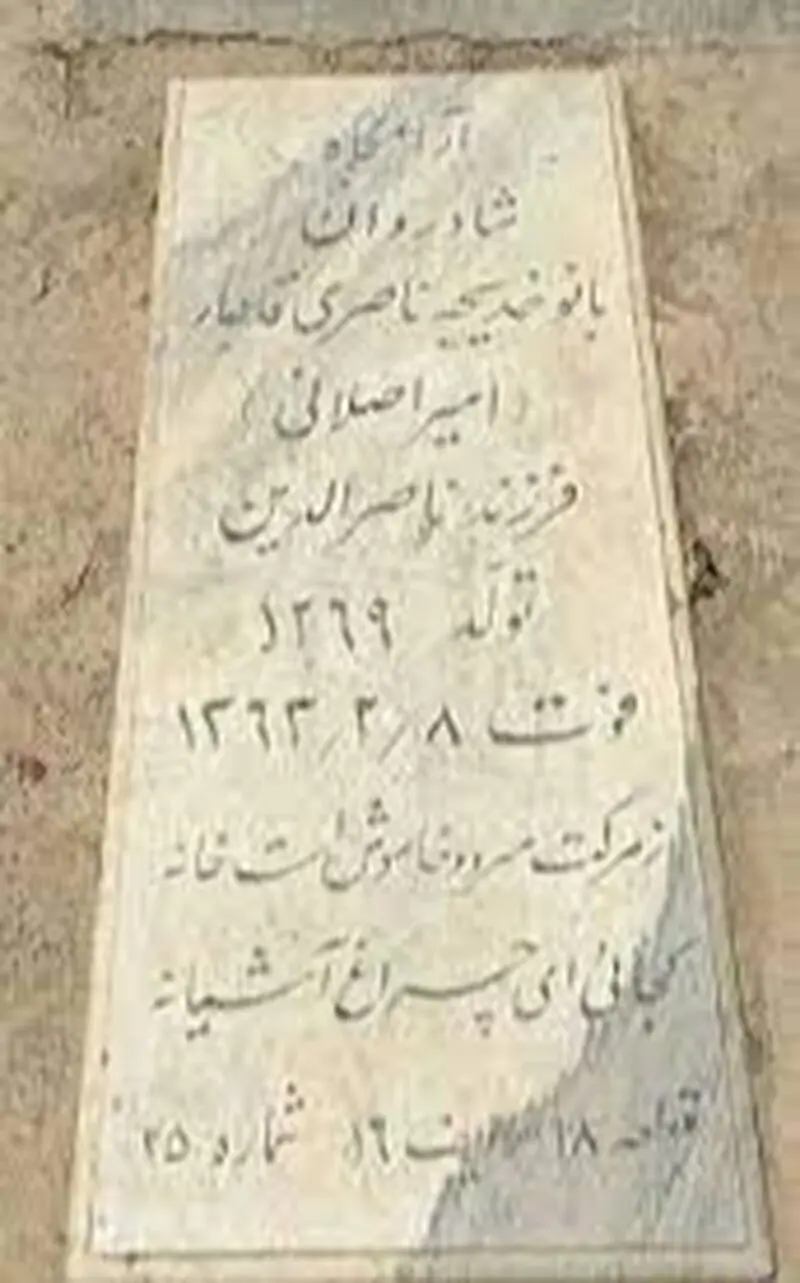 آرامگاه
شادروان
بانو خدیجه ناصری قاجار
(امیراصلانی)
فرزند ناصرالدین
تولّد ۱۲۶۹
فوت ۱۳۶۳/۲/۸
ز مرگت سرد و خاموش است خانه
کجائی ای چراغ آشیانه
قطعه ۱۸ ردیف ۱۶ شماره ۲۵